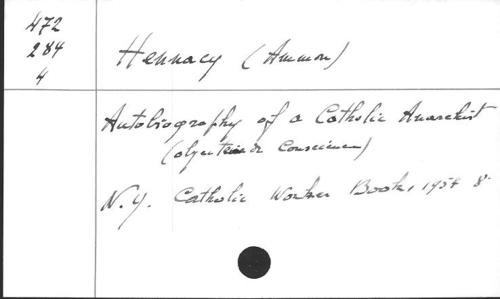 472
284
4
Hennacy (Ammon)
Autobiography of a Catholic Anarchist
(objecteur de Conscience)
N.Y. Catholic Worker Books, 1954 8°